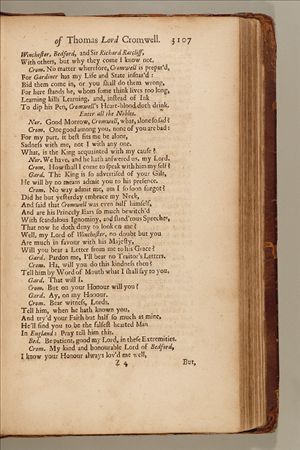 of Thomas Lord Cromwell. 3107
Winchester, Bedford, and Sir Richard Ratcliff,
With others, but why they come I know not.
Crom. No matter wherefore, Cromwell is prepar'd,
For Gardiner has my Life and State insnar'd:
Bid them come in, or you shall do them wrong,
For here stands he, whom some think lives too long,
Learning kills Learning, and, instead of Ink
To dip his Pen, Cromwell's Heart-blood doth drink.
Enter all the Nobles.
Nor. Good Morrow, Cromwell, what, alone so sad?
Crom. One good among you, none of you are bad:
For my part, it best fits me be alone,
Sadness with me, not I with any one.
What, is the King acquainted with my cause?
Nor. We have, and he hath answered us, my Lord.
Crom. How shall I come to speak with him my self?
Gard. The King is so advertised of your Guilt,
He will by no means admit you to his presence.
Crom. No way admit me, am I so soon forgot?
Did he but yesterday embrace my Neck,
And said that Cromwell was even half himself,
And are his Princely Ears so much bewitch'd
With scandalous Ignominy, and sland'rous Speeches,
That now he doth deny to look on me?
Well, my Lord of Winchester, no doubt but you
Are much in favour with his Majesty,
Will you bear a Letter from me to his Grace?
Gard. Pardon me, I'll bear no Traitor's Letters.
Crom. Ha, will you do this kindness then?
Tell him by Word of Mouth what I shall say to you.
Gard. That will I.
Crom. But on your Honour will you?
Gard. Ay, on my Honour.
Crom. Bear witness, Lords.
Tell him, when he hath known you,
And try'd your Faith but half so much as mine,
He'll find you to be the falsest hearted Man
In England: Pray tell him this.
Bed. Be patient, good my Lord, in these Extremities.
Crom. My kind and honourable Lord of Bedford,
I know your Honour always lov'd me well,
Z 4 But,